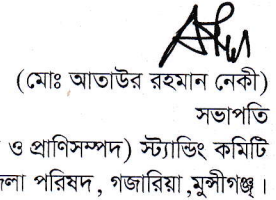 (মোঃ আতাউর রহমান নেকী)
সভাপতি
ও প্রাণিসম্পদ) স্ট্যান্ডিং কমিটি
পরিষদ, গজারিয়া,মুন্সীগঞ্জ।